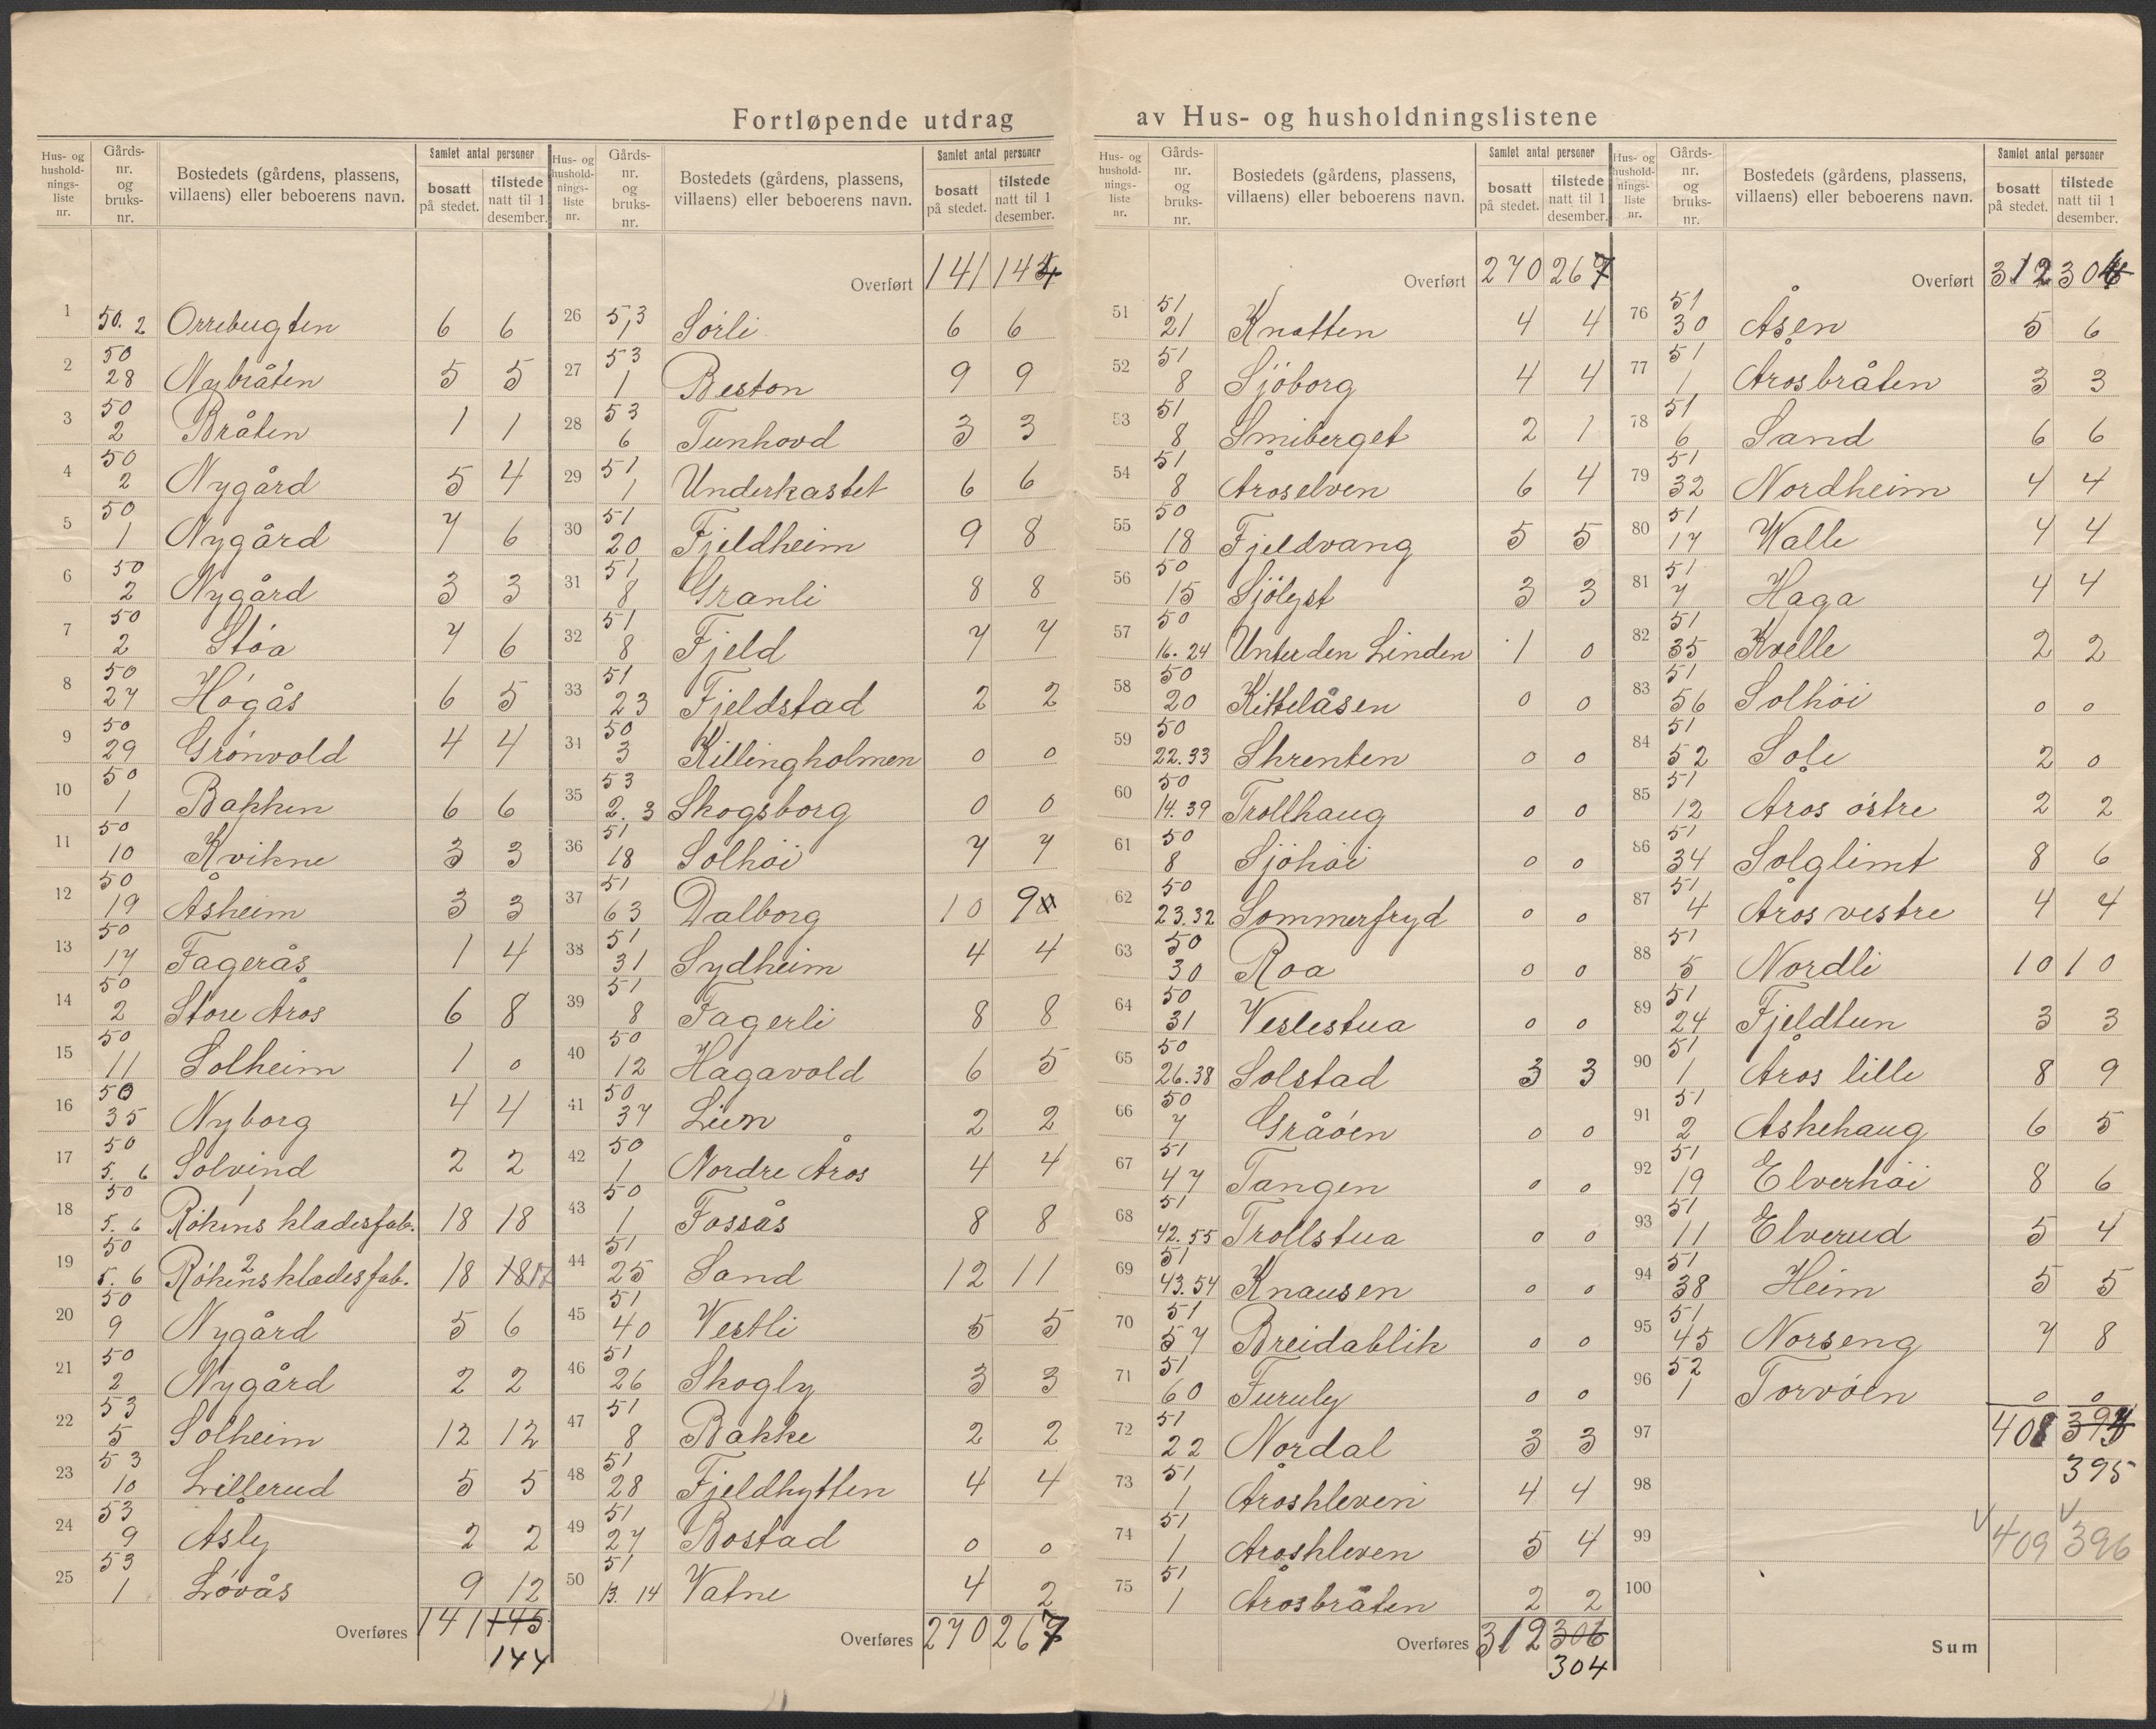 Fortløpende utdrag av Hus- og husholdningslistene
Hus- og husholdnings-liste nr. Gårds-nr. og bruks-nr. Bostedets (gårdens, plassens, villaens) eller beboerens navn. Samlet antal personer bosatt på stedet. tilstede natt til 1 desember.
1 50. 2 Orrebugten 6 6
2 50 28 Nybråten 5 5
3 50 2 Bråten 1 1
4 50 2 Nygård 5 4
5 50 1 Nygård 7 6
6 50 2 Nygård 3 3
7 50 2 Støa 7 6
8 50 27 Høgås 6 5
9 50 29 Grønvold 4 4
10 50 1 Bakken 6 6
11 50 10 Kvikne 3 3
12 50 19 Åsheim 3 3
13 50 17 Fagerås 1 4
14 50 2 Store Åros 6 8
15 50 11 Solheim 1 0
16 50 35 Nyborg 4 4
17 50 5. 6 Solvind 2 2
18 50 5. 6 Røkens kladesfab. 1 18 18
19 50 5. 6 Røkens kladesfab. 2 18 18 17
20 50 9 Nygård 5 6
21 50 2 Nygård 2 2
22 53 5 Solheim 12 12
23 53 10 Lillerud 5 5
24 53 9 Åsly 2 2
25 53 1 Løvås 9 12
Overføres 141 145
144
Hus- og husholdnings-liste nr. Gårds-nr. og bruks-nr. Bostedets (gårdens, plassens, villaens) eller beboerens navn. Samlet antal personer bosatt på stedet. tilstede natt til 1 desember.
Overført 141 144
26 53 1 Sørli 6 6
27 53 1 Beston 9 9
28 53 6 Tunhovd 3 3
29 51 1 Underkastet 6 6
30 51 20 Fjeldheim 9 8
31 51 8 Granli 8 8
32 51 8 Fjeld 7 7
33 51 23 Fjeldstad 2 2
34 50 3 Killingholmen 0 0
35 53 2. 3 Skogsborg 0 0
36 51 18 Solhøi 7 7
37 51 63 Dalborg 10 9
38 51 31 Sydheim 4 4
39 51 8 Fagerli 8 8
40 50 12 Hagavold 6 5
41 50 37 Lien 2 2
42 50 1 Nordre Åros 4 4
43 50 1 Fossås 8 8
44 51 25 Sand 12 11
45 51 40 Vestli 5 5
46 51 26 Skogly 3 3
47 51 8 Bakke 2 2
48 51 28 Fjeldhytten 4 4
49 51 27 Bostad 0 0
50 51 13. 14 Vatne 4 2
Overføres 270 267
Hus- og husholdnings-liste nr. Gårds-nr. og bruks-nr. Bostedets (gårdens, plassens, villaens) eller beboerens navn. Samlet antal personer bosatt på stedet. tilstede natt til 1 desember.
Overført 270 267
51 51 21 Knatten 4 4
52 51 8 Sjöborg 4 4
53 51 8 Smiberget 2 1
54 51 8 Åroselven 6 4
55 50 18 Fjeldvang 5 5
56 50 15 Sjölyst 3 3
57 50 16. 24 Unter den Linden 1 0
58 50 20 Kittelåsen 0 0
59 50 22. 33 Skrenten 0 0
60 50 14. 39 Trollhaug 0 0
61 50 8 Sjöhøi 0 0
62 50 23. 32 Sommerfryd 0 0
63 50 30 Roa 0 0
64 50 31 Veslestua 0 0
65 50 26. 38 Solstad 3 3
66 50 7 Gråøen 0 0
67 51 47 Tangen 0 0
68 51 42. 55 Trollstua 0 0
69 51 43. 54 Knausen 0 0
70 51 57 Breidablik 0 0
71 51 60 Furuly 0 0
72 51 22 Nordal 3 3
73 51 1 Åroskleven 4 4
74 51 1 Åroskleven 5 4
75 51 1 Årosbråten 2 2
Overføres 312 306
304
Hus- og husholdnings-liste nr. Gårds-nr. og bruks-nr. Bostedets (gårdens, plassens, villaens) eller beboerens navn. Samlet antal personer bosatt på stedet. tilstede natt til 1 desember.
Overført 312 304
76 51 30 Åsen 5 6
77 51 1 Årosbråten 3 3
78 51 6 Sand 6 6
79 51 32 Nordheim 4 4
80 51 17 Walle 4 4
81 51 7 Haga 4 4
82 51 35 Kvelle 2 2
83 51 56 Solhøi 0 0
84 51 52 Sole 2 0
85 51 12 Åros østre 2 2
86 51 34 Solglimt 8 6
87 51 4 Åros vestre 4 4
88 51 5 Nordli 10 10
89 51 24 Fjeldtun 3 3
90 51 1 Åros lille 8 9
91 51 2 Askehaug 6 5
92 51 19 Elverhøi 8 6
93 51 11 Elverud 5 4
94 51 38 Heim 5 5
95 51 45 Norseng 7 8
96 52 1 Torvøen 0 0
97 408
98 395
99 409 396
100
Sum